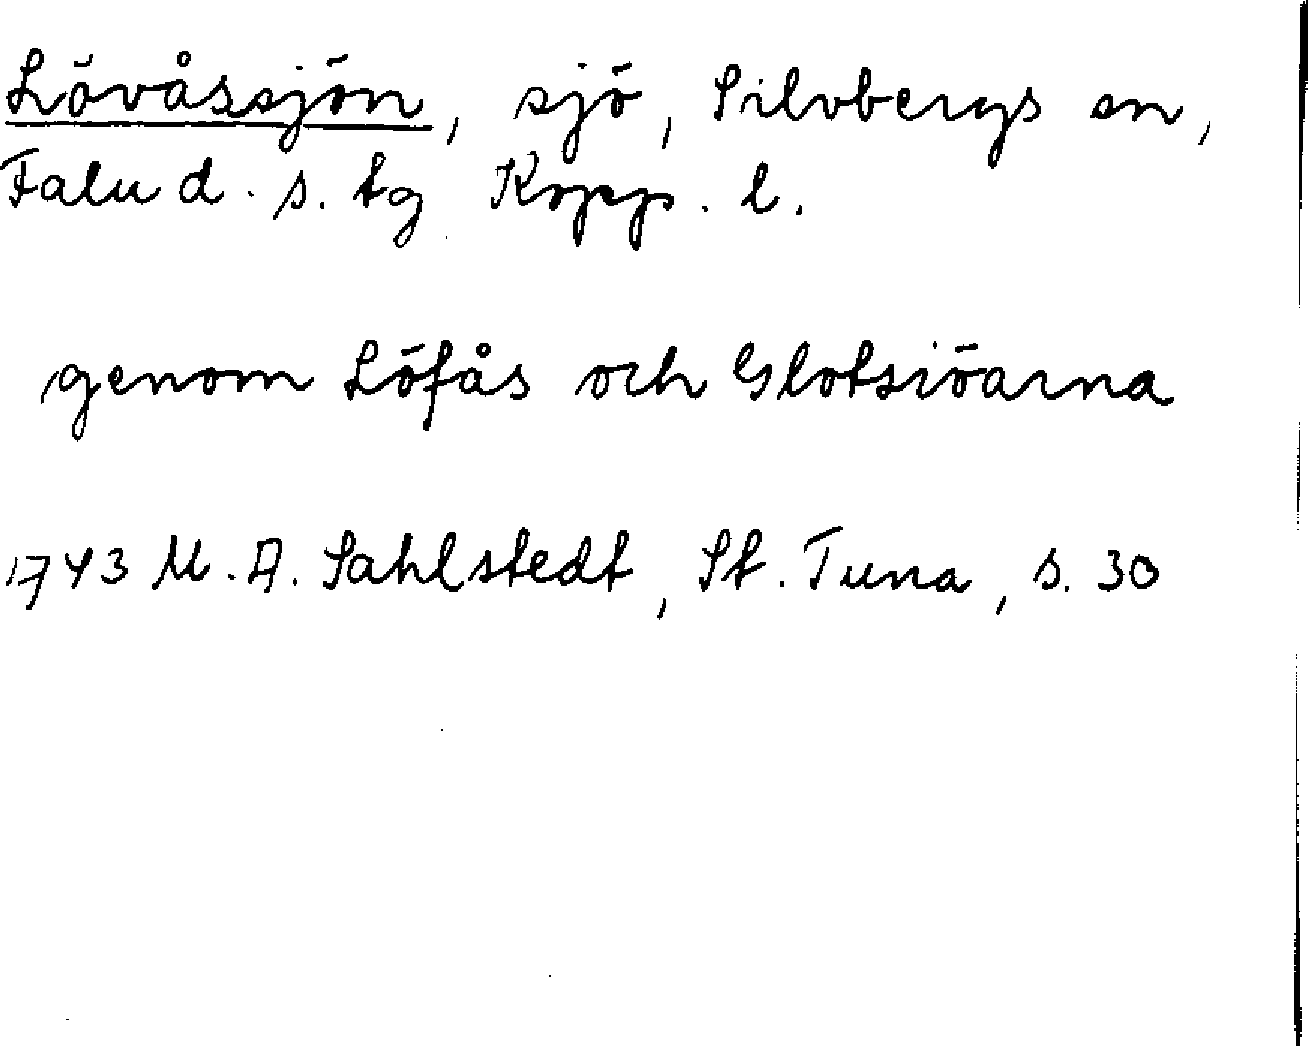 Lövåssjön, sjö, Silvbergs sn,
Falu d. s. tg Kopp. l.
genom Löfås och Glotsiöarna
1743 M. A. Sahlstedt, St. Tuna, s. 30